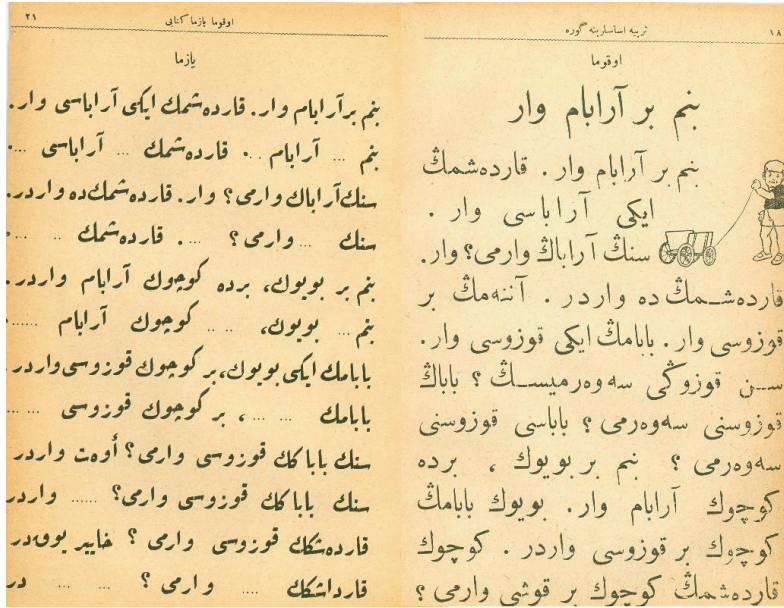 ١٨
تربيه اساسلرينه گوره
اوقوما
بنم بر آرابام وار
بنم بر آرابام وار . قارده‌شمڭ
ايكى آراباسى وار .
سنڭ آراباڭ وارمى؟ وار.
قارده‌شـمڭ ده واردر . آننه‌مڭ بر
قوزوسى وار . بابامڭ ايكى قوزوسى وار.
سـن قوزوڭى سه‌وه‌رميسـڭ ؟ باباڭ
قوزوسنى سه‌وه‌رمى ؟ باباسى قوزوسنى
سه‌وه‌رمى ؟ بنم بر بويوك ، برده
كوچوك آرابام وار. بويوك بابامڭ
كوچوك بر قوزوسى واردر . كوچوك
قارده‌شمڭ كوچوك بر قوشى وارمى ؟
٢١
اوقوما يازما كتابى
يازما
بنم بر آرابام وار. قارده‌شمك ايكى آراباسى وار.
بنم ... آرابام ... قارده‌شمك ... آراباسى ...
سنك آراباك وارمى؟ وار. قارده‌شمك‌ده واردر.
سنك ... وارمى؟ .... قارده‌شمك .. ... .
بنم بر بويوك، برده كوچوك آرابام واردر.
بنم ... بويوك، .. .. كوچوك آرابام ......
بابامك ايكى بويوك، بر كوچوك قوزوسى واردر.
بابامك ... ... ، بر كوچوك قوزوسى ... ...
سنك باباكك قوزوسى وارمى؟ أوه‌ت واردر
سنك باباكك قوزوسى وارمى؟ ...... واردر
قارده‌شكك قوزوسى وارمى ؟ خايير يوقدر
قارداشكك .... وارمى ؟ ... ... در